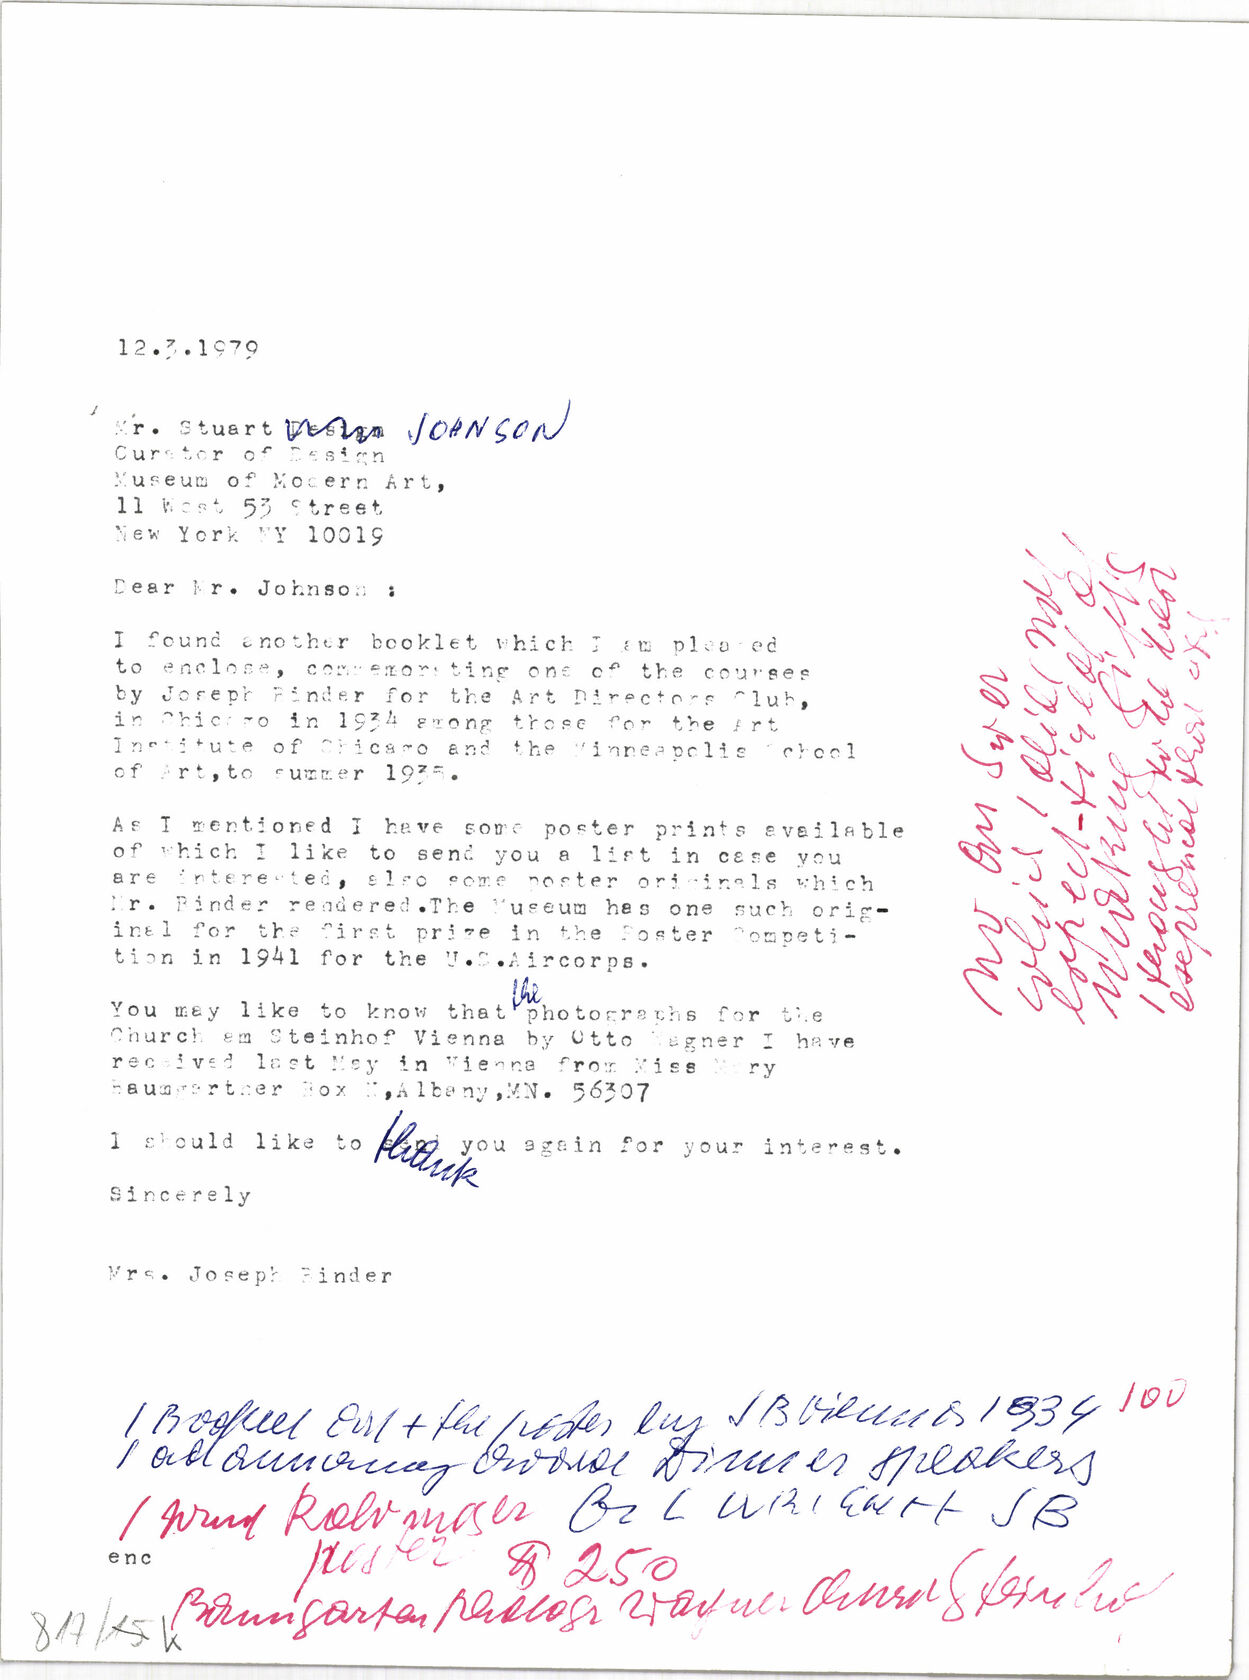 12.3.1979
Mr. Stuart Design JOHNSON
Curator of Design
Museum of Modern Art,
11 West 53 Street
New York NY 10019
Dear Mr. Johnson :
I found another booklet which I am pleased
to enclose, commemorating one of the courses
by Joseph Binder for the Art Directors Club,
in Chicago in 1934 among those for the Art
Institute of Chicago and the Minneapolis School
of Art,to summer 1935.
As I mentioned I have some poster prints available
of which I like to send you a list in case you
are interested, also some poster originals which
Mr. Binder rendered.The Museum has one such orig-
inal for the first prize in the Poster Competi-
tion in 1941 for the U.S.Aircorps.
the
You may like to know that photographs for the
Church am Steinhof Vienna by Otto Wagner I have
received last May in Vienna from Miss Mary
Baumgartner Box ,Albany,MN. 56307
I should like to send you again for your interest.
thank
Sincerely
Mrs. Joseph Binder
no answer
which I did not
expect - tired of
making gifts
I thought
100
1 Booklet + the poster by JB Vienna 1934
1 ad Dinner speakers
1 WRIGHT + JB
poster $ 250
enc
Baumgarten Wagner Steinhof
817/15 K